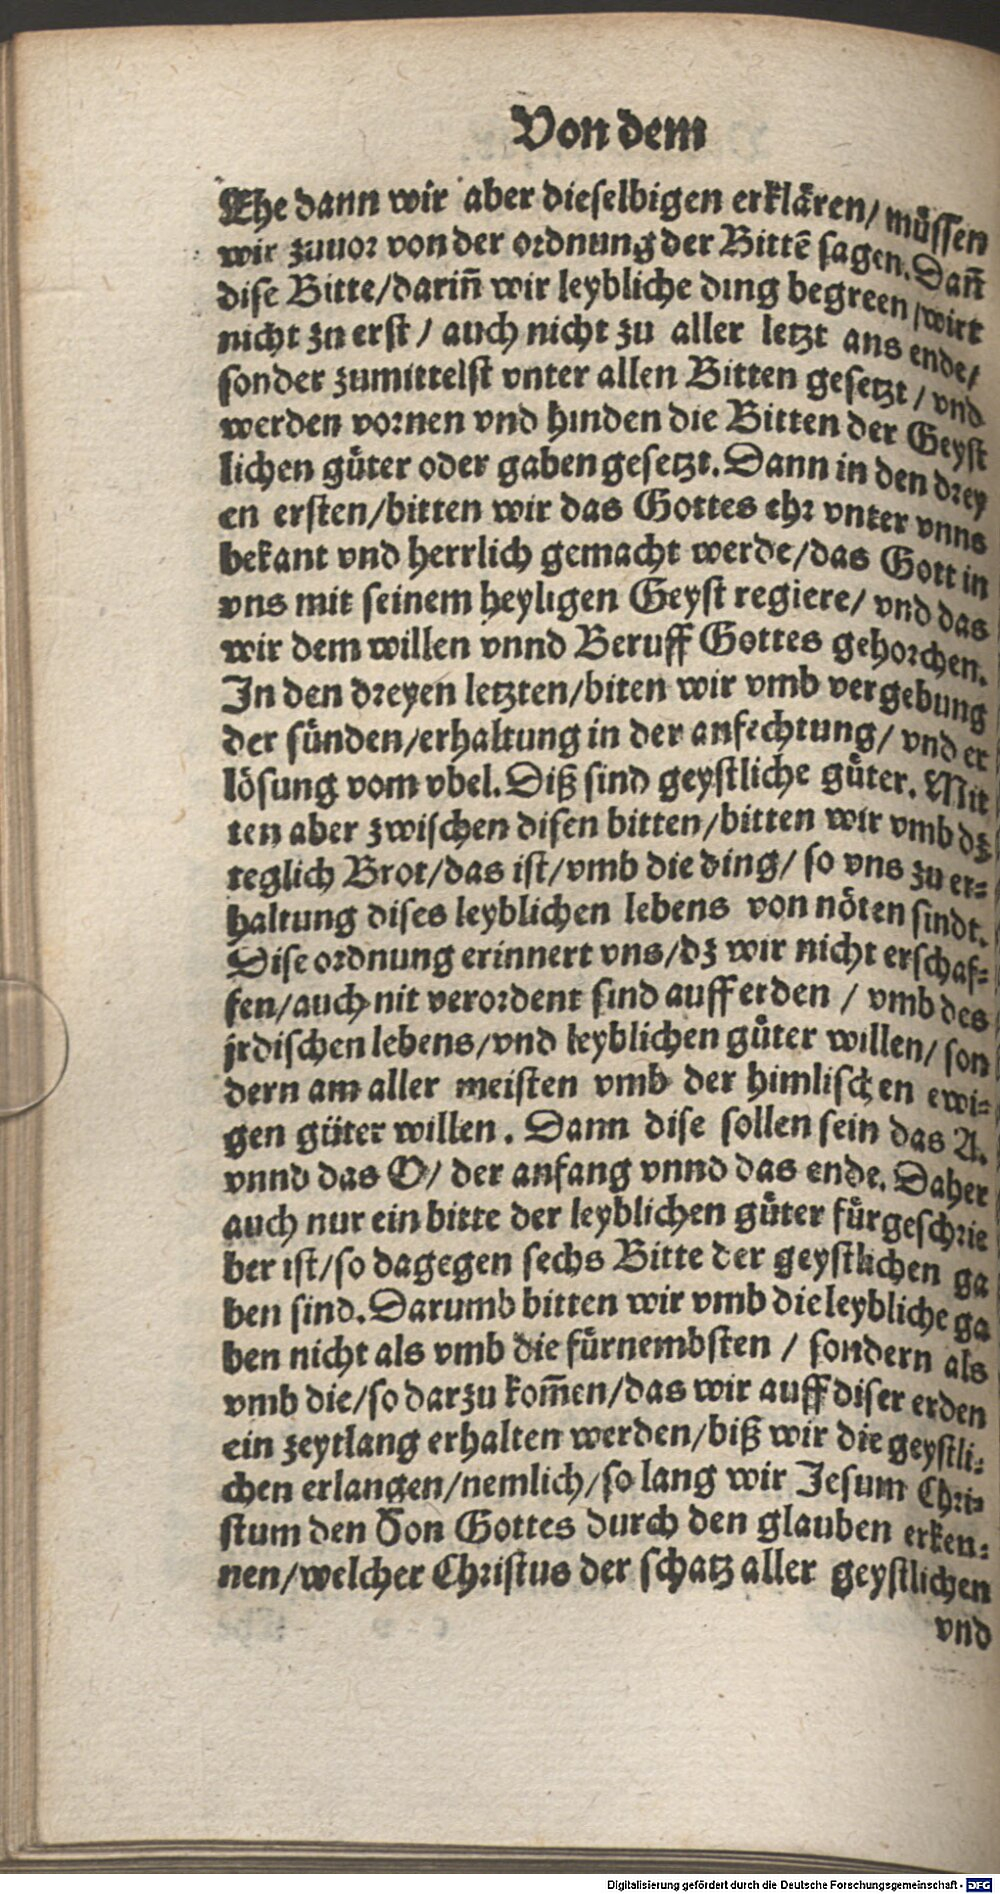 Von dem
Ehe dann wir aber dieselbigen erklären/ müssen
wir zuuor von der ordnung der Bittē sagen. Dañ
dise Bitte/dariñ wir leybliche ding begreen/wirt
nicht zu erst/ auch nicht zu aller letzt ans ende/
sonder zumittelst vnter allen Bitten gesetzt/ vnd
werden vornen vnd hinden die Bitten der Geyst
lichen gůter oder gaben gesetzt. Dann in den drey
en ersten/bitten wir das Gottes ehr vnter vnns
bekant vnd herrlich gemacht werde/das Gott in
vns mit seinem heyligen Geyst regiere/ vnd das
wir dem willen vnnd Beruff Gottes gehorchen.
In den dreyen letzten/biten wir vmb vergebung
der sünden/erhaltung in der anfechtung/ vnd er
lösung vom vbel. Diß sind geystliche gůter. Mit
ten aber zwischen disen bitten/bitten wir vmb dz
teglich Brot/das ist/vmb die ding/ so vns zu er-
haltung dises leyblichen lebens von nöten sindt.
Dise ordnung erinnert vns/dz wir nicht erschaf-
fen/auch nit verordent sind auff erden / vmb des
jrdischen lebens/vnd leyblichen gůter willen/ son
dern am aller meisten vmb der himlischen ewi-
gen güter willen. Dann dise sollen sein das A.
vnnd das O/ der anfang vnnd das ende. Daher
auch nur ein bitte der leyblichen gůter fürgeschrie
ber ist/so dagegen sechs Bitte der geystlichen ga
ben sind. Darumb bitten wir vmb die leybliche ga
ben nicht als vmb die fürnembsten / sondern als
vmb die/so darzu kom̄en/das wir auff diser erden
ein zeytlang erhalten werden/biß wir die geystli-
chen erlangen/nemlich/so lang wir Jesum Chri-
stum den Son Gottes durch den glauben erken-
nen/welcher Christus der schatz aller geystlichen
vnd
Digitalisierung gefördert durch die Deutsche Forschungsgemeinschaft - DFG